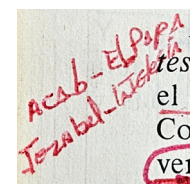 Acab - El Papa
Jezabel - Iglesia
tés
el
Co
ver